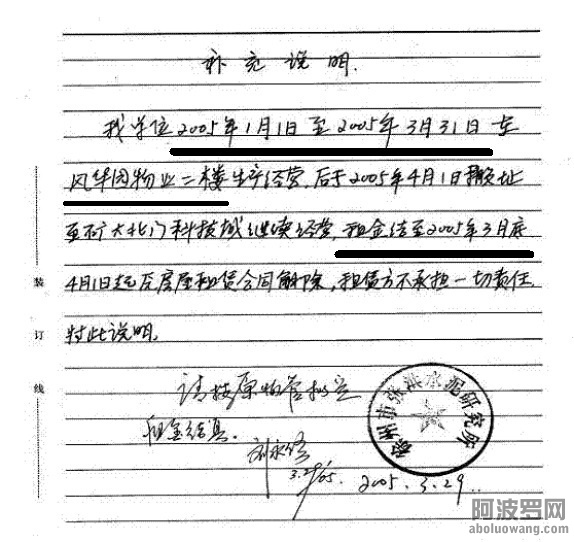 补充说明.
我单位2005年1月1日至2005年3月31日在
风华园物业二楼生产经营,后于2005年4月1日搬址
至矿大北门科技城继续经营,租金结至2005年3月底
4月1日起反房屋租赁合同解除,租赁方不承担一切责任.
特此说明.
请按原物管
租金结算.
刘永修
3.29/05
2005.3.29.
徐州市张洪水泥研究所
装
订
线
阿波罗网
www.aboluowang.com